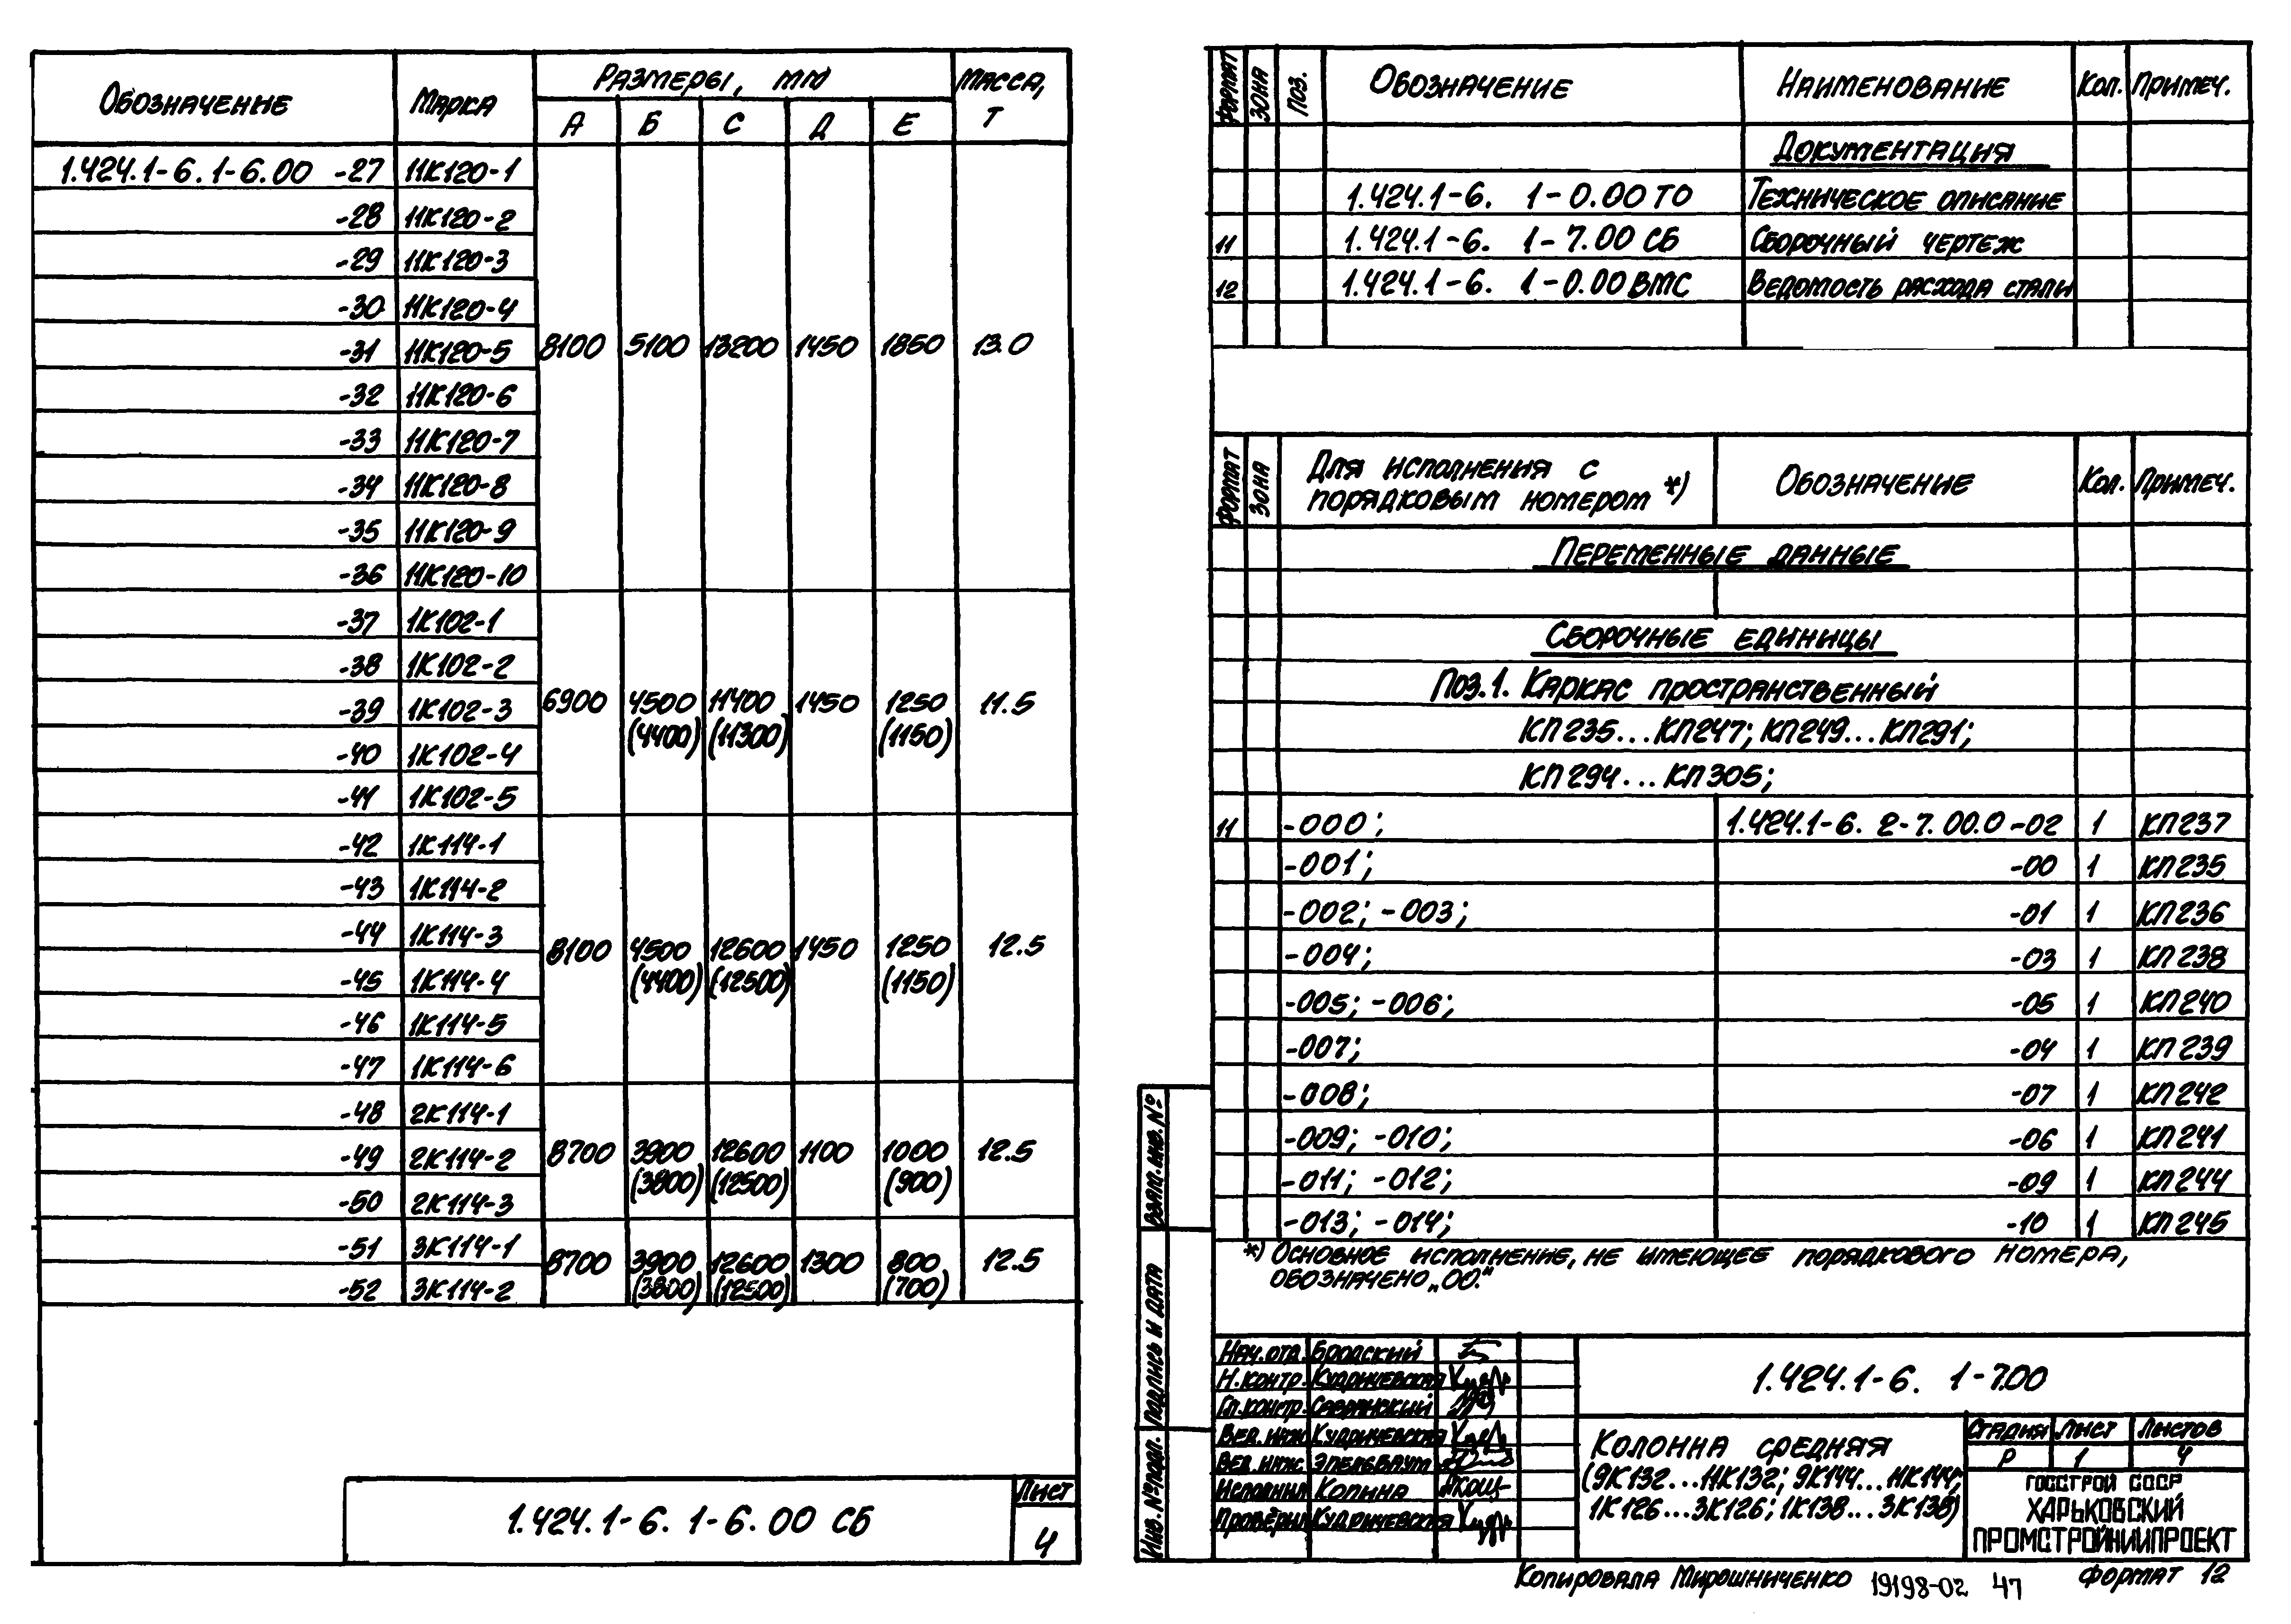 Обозначение Марка Размеры, мм Масса, т
А Б С Д Е
1.424.1-6.1-6.00 -27 11К120-1
-28 11К120-2
-29 11К120-3
-30 11К120-4
-31 11К120-5 8100 5100 13200 1450 1850 13.0
-32 11К120-6
-33 11К120-7
-34 11К120-8
-35 11К120-9
-36 11К120-10
-37 1К102-1
-38 1К102-2
-39 1К102-3 6900 4500 11400 1450 1250 11.5
(4400) (11300) (1150)
-40 1К102-4
-41 1К102-5
-42 1К114-1
-43 1К114-2
-44 1К114-3 8100 4500 12600 1450 1250 12.5
-45 1К114-4 (4400) (12500) (1150)
-46 1К114-5
-47 1К114-6
-48 2К114-1
-49 2К114-2 8700 3900 12600 1100 1000 12.5
(3800) (12500) (900)
-50 2К114-3
-51 3К114-1 8700 3900 12600 1300 800 12.5
-52 3К114-2 (3800) (12500) (700)
1.424.1-6. 1-6.00 СБ
Лист
4
Формат Зона Поз. Обозначение Наименование Кол. Примеч.
Документация
1.424.1-6. 1-0.00 ТО Техническое описание
11 1.424.1-6. 1-7.00 СБ Сборочный чертеж
12 1.424.1-6. 1-0.00 ВМС Ведомость расхода стали
Формат Зона Для исполнения с порядковым номером *) Обозначение Кол. Примеч.
Переменные данные
Сборочные единицы
Поз.1. Каркас пространственный
КП235...КП247; КП249...КП291;
КП294...КП305;
11 -000; 1.424.1-6. 2-7.00.0 -02 1 КП237
-001; -00 1 КП235
-002; -003; -01 1 КП236
-004; -03 1 КП238
-005; -006; -05 1 КП240
-007; -04 1 КП239
-008; -07 1 КП242
-009; -010; -06 1 КП241
-011; -012; -09 1 КП244
-013; -014; -10 1 КП245
*) Основное исполнение, не имеющее порядкового номера,
обозначено „00."
Взам.инв.№
Подпись и дата
Инв.№подл.
Нач.отд. Бродский
Н.контр. Кудричевская
Гл.констр.
Вед.инж. Кудричевская
Вед.инж.
Исполнил Копина
Проверил Кудричевская
1.424.1-6. 1-7.00
Колонна средняя
(9К132...11К132; 9К144...11К144;
1К126...3К126; 1К138...3К138)
Стадия Лист Листов
Р 1 4
Госстрой СССР
ХАРЬКОВСКИЙ
ПРОМСТРОЙНИИПРОЕКТ
Копировала Мирошниченко 19198-02 47 Формат 12